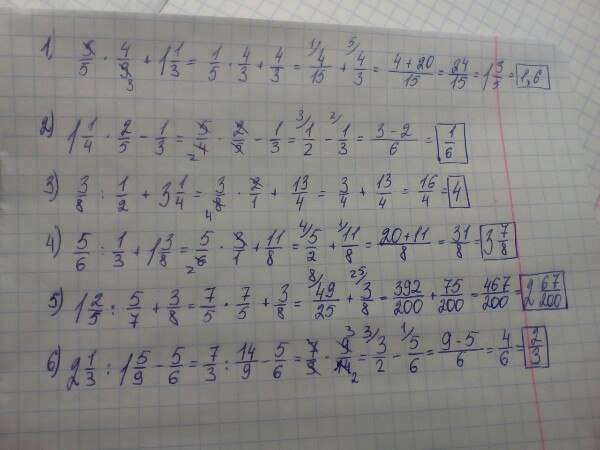 1) 3/5 · 4/9 3 + 1 1/3 = 1/5 · 4/3 + 4/3 = 1/ 4/15 + 5/ 4/3 = (4+20)/15 = 24/15 = 1 3/5 = 1,6
2) 1 1/4 · 2/5 - 1/3 = 5/4 2 · 2/5 - 1/3 = 3/ 1/2 - 2/ 1/3 = (3-2)/6 = 1/6
3) 3/8 : 1/2 + 3 1/4 = 3/8 4 · 2/1 + 13/4 = 3/4 + 13/4 = 16/4 = 4
4) 5/6 : 1/3 + 1 3/8 = 5/6 2 · 3/1 + 11/8 = 4/ 5/2 + 1/ 11/8 = (20+11)/8 = 31/8 = 3 7/8
5) 1 2/5 : 5/7 + 3/8 = 7/5 · 7/5 + 3/8 = 8/ 49/25 + 25/ 3/8 = 392/200 + 75/200 = 467/200 2 67/200
6) 2 1/3 : 1 5/9 - 5/6 = 7/3 : 14/9 - 5/6 = 7/3 · 9 3/14 2 = 3/ 3/2 - 1/ 5/6 = (9-5)/6 = 4/6 = 2/3